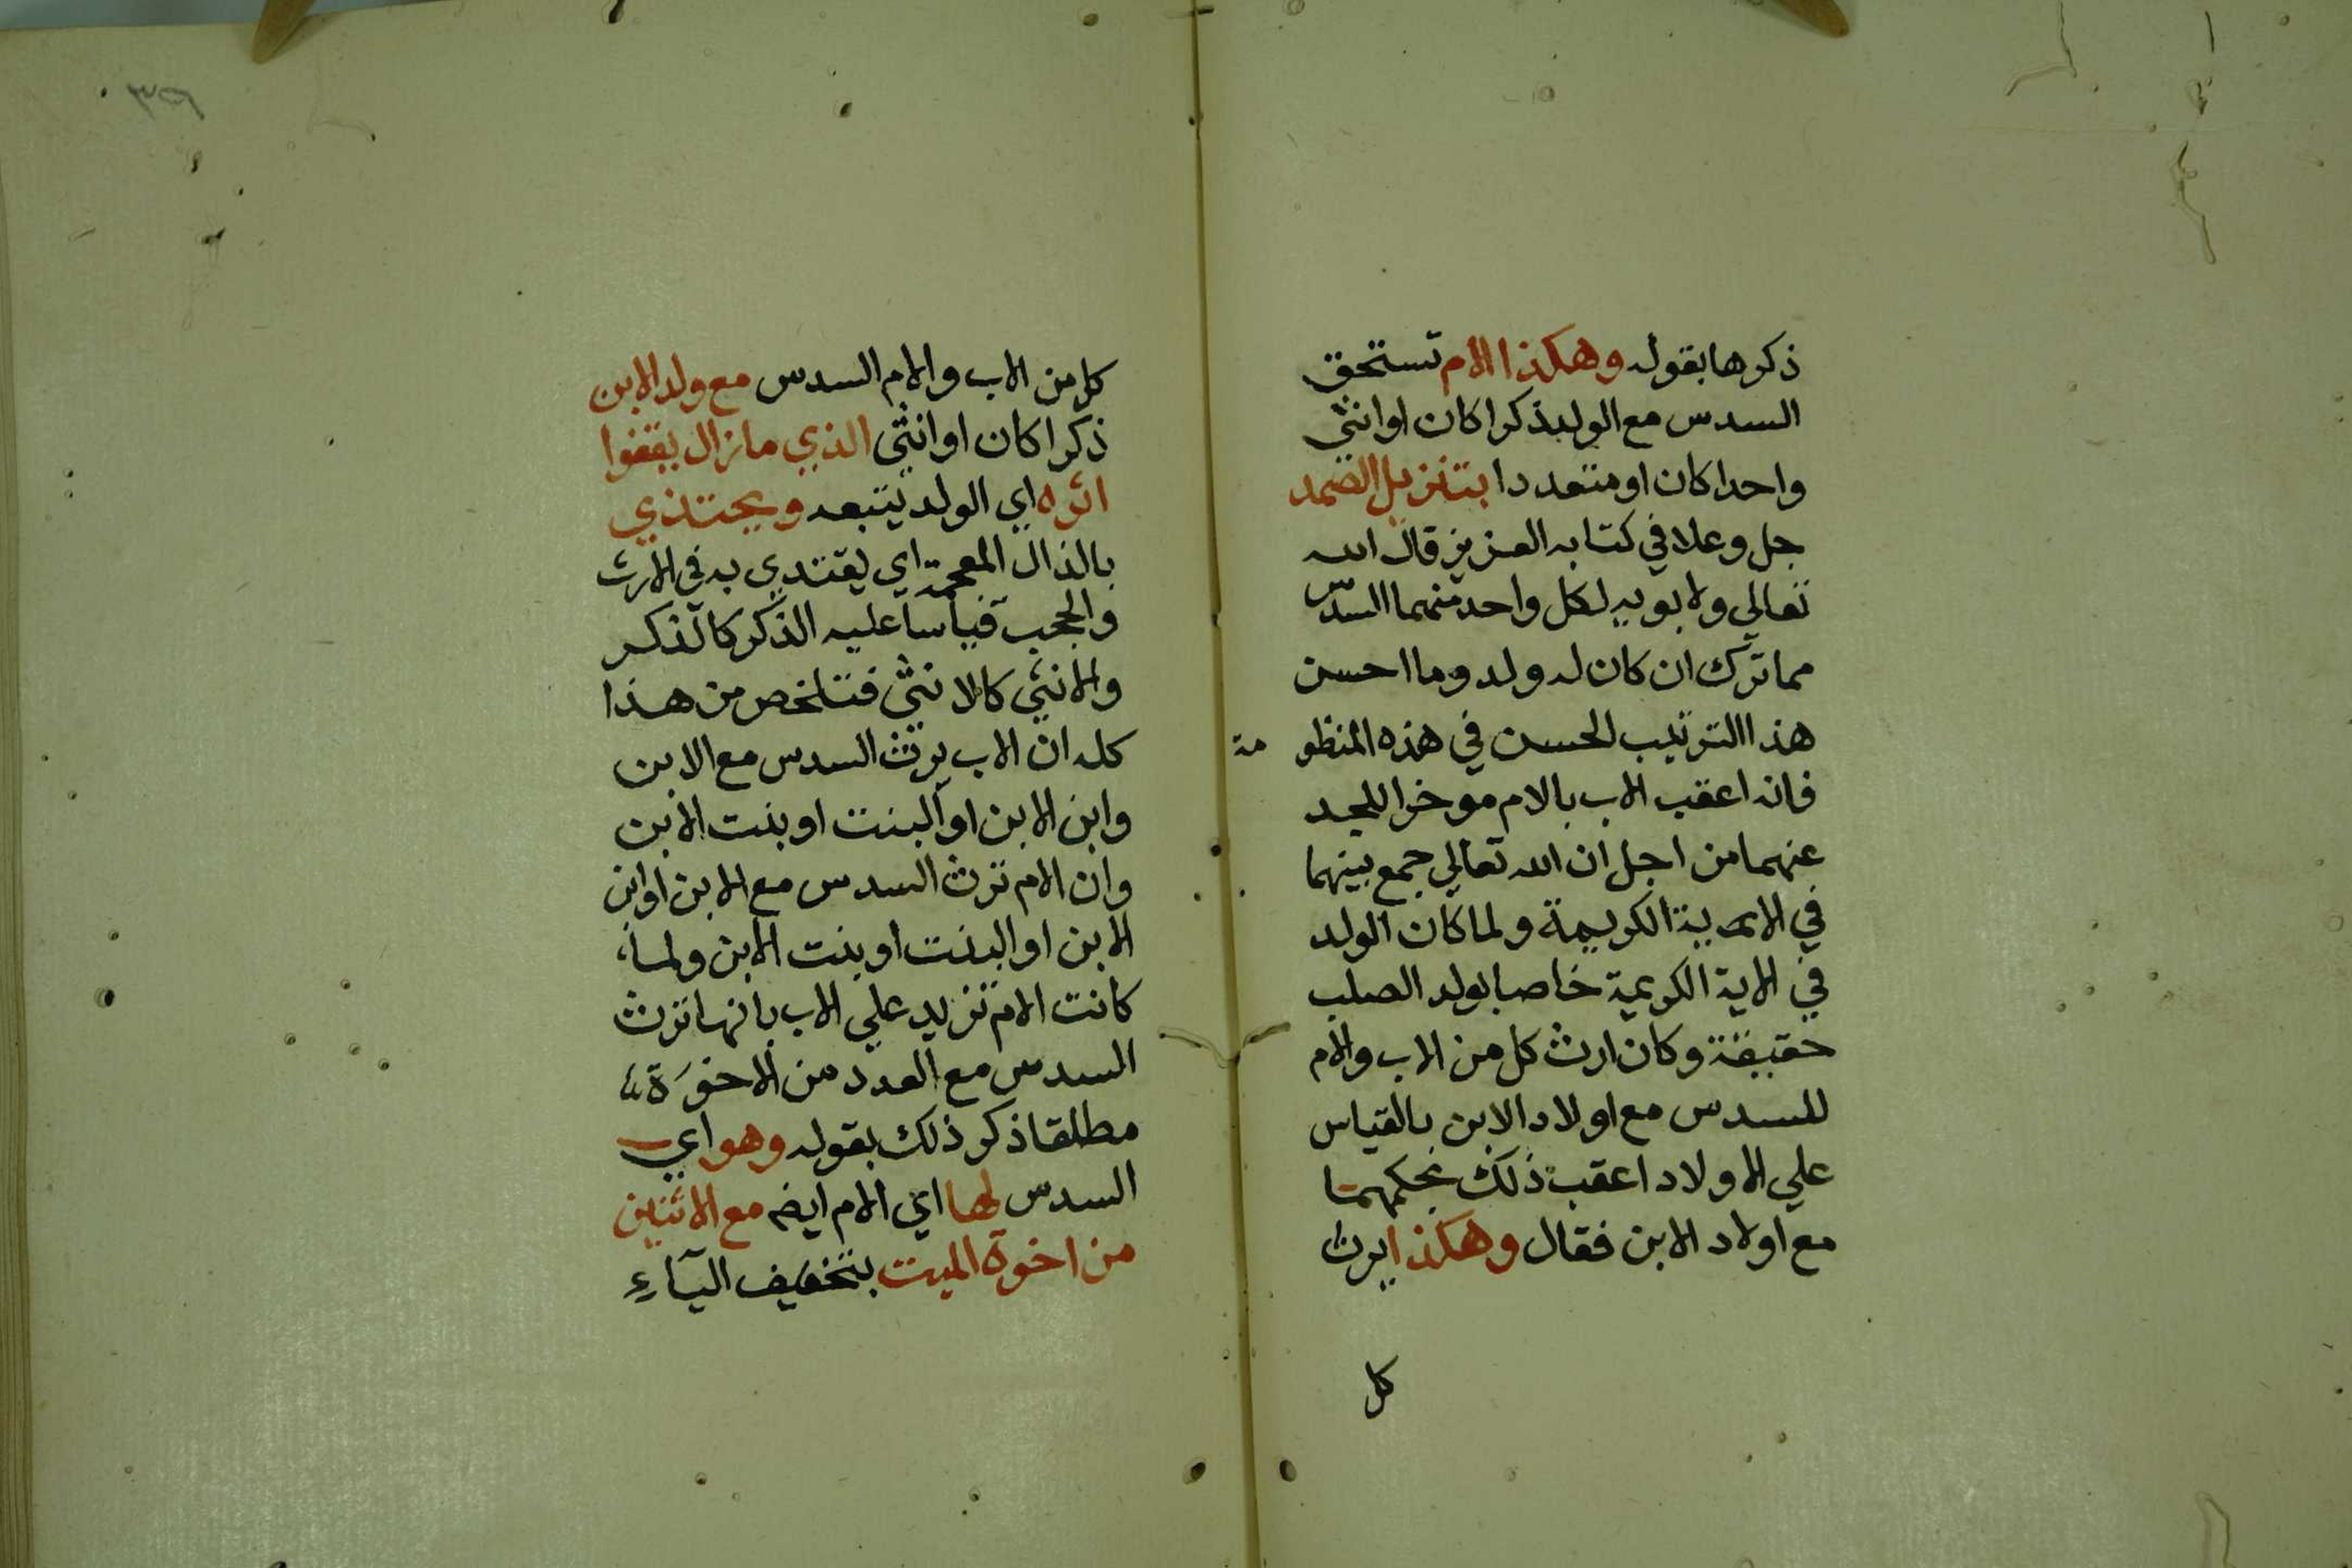 ذكرها بقوله وهكذا الام تستحق
السدس مع الولد ذكرا كان او انثي
واحدا كان او متعددا بتنزيل الصمد
جل وعلا في كتابه العزيز قال الله
تعالي ولابويه لكل واحد منهما السدس
مما ترك ان كان له ولد وما احسن
هذا الترتيب الحسن في هذه المنظومة
فانه اعقب الاب بالام موخرا للجد
عنهما من اجل ان الله تعالي جمع بينهما
في الاية الكريمة ولما كان الولد
في الاية الكريمة خاصا بولد الصلب
حقيقة وكان ارث كل من الاب والام
للسدس مع اولاد الابن بالقياس
علي الاولاد اعقب ذلك بحكمهما
مع اولاد الابن فقال وهكذا يرث
كل
كل من الاب والام السدس مع ولد الابن
ذكرا كان او انثي الذي مازال يقفوا
اثره اي الولد يتبعه ويحتذي
بالذال المعجمة اي يقتدي به في الارث
والحجب قياسا عليه الذكر كالذكر
والانثي كالانثي فتلخص من هذا
كله ان الاب يرث السدس مع الابن
وابن الابن او البنت او بنت الابن
وان الام ترث السدس مع الابن او ابن
الابن او البنت او بنت الابن ولما
كانت الام تزيد علي الاب بانها ترث
السدس مع العدد من الاخوة
مطلقا ذكر ذلك بقوله وهو اي
السدس لها اي الام ايضا مع الاثنين
من اخوة الميت بتخفيف الياء